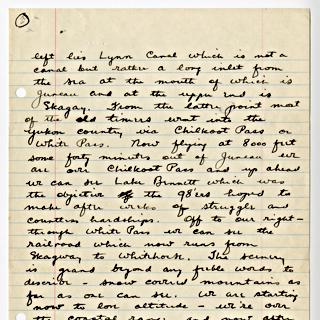 left lies Lynn Canal which is not a
canal but rather a long inlet from
the sea at the mouth of which is
Juneau and at the upper end is
Skagay. From the latter point most
of the old timers went into the
Yukon country via Chilkoot Pass or
White Pass. Now flying at 8000 feet
some forty minutes out of Juneau we
are over Chilkoot Pass and up ahead
we can see Lake Bennett which was
the objective of the 98ers hoped to
make after weeks of struggle and
countless hardships. Off to our right -
through White Pass we can see the
railroad which now runs from
Skagway to Whitehorse. The scenery
is grand beyond any feeble words to
describe - snow covered mountains as
far as one can see. We are starting
now to lose altitude - we're over
the coastal range and now after